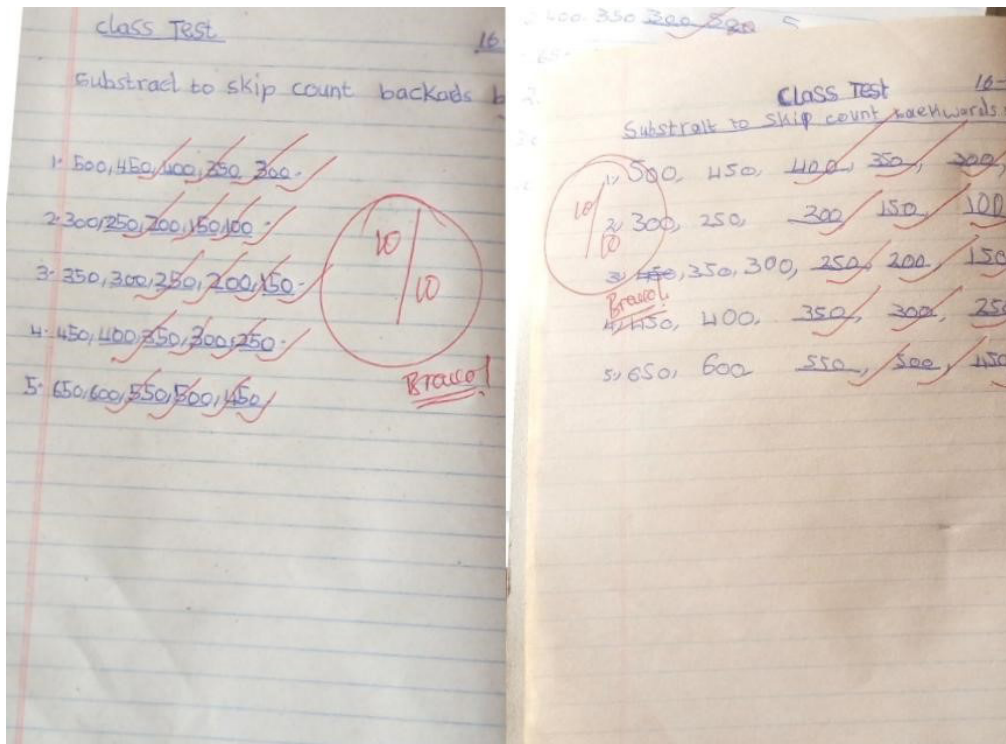 class Test
16
Substract to skip count backads b
1. 500, 450, 400, 350, 300.
2. 300, 250, 200, 150, 100.
3. 350, 300, 250, 200, 150.
4. 450, 400, 350, 300, 250.
5. 650, 600, 550, 500, 450
10/10
Bravo!
400. 350 300
65
CLASS TEST
16-
Substralt to skip count backwards
1, 500, 450, 400, 350, 300,
2, 300, 250, 200, 150, 100
3, 350, 300, 250, 200, 150
4, 450, 400, 350, 300, 250
5, 650, 600 550, 500, 450
10/10
Bravo!